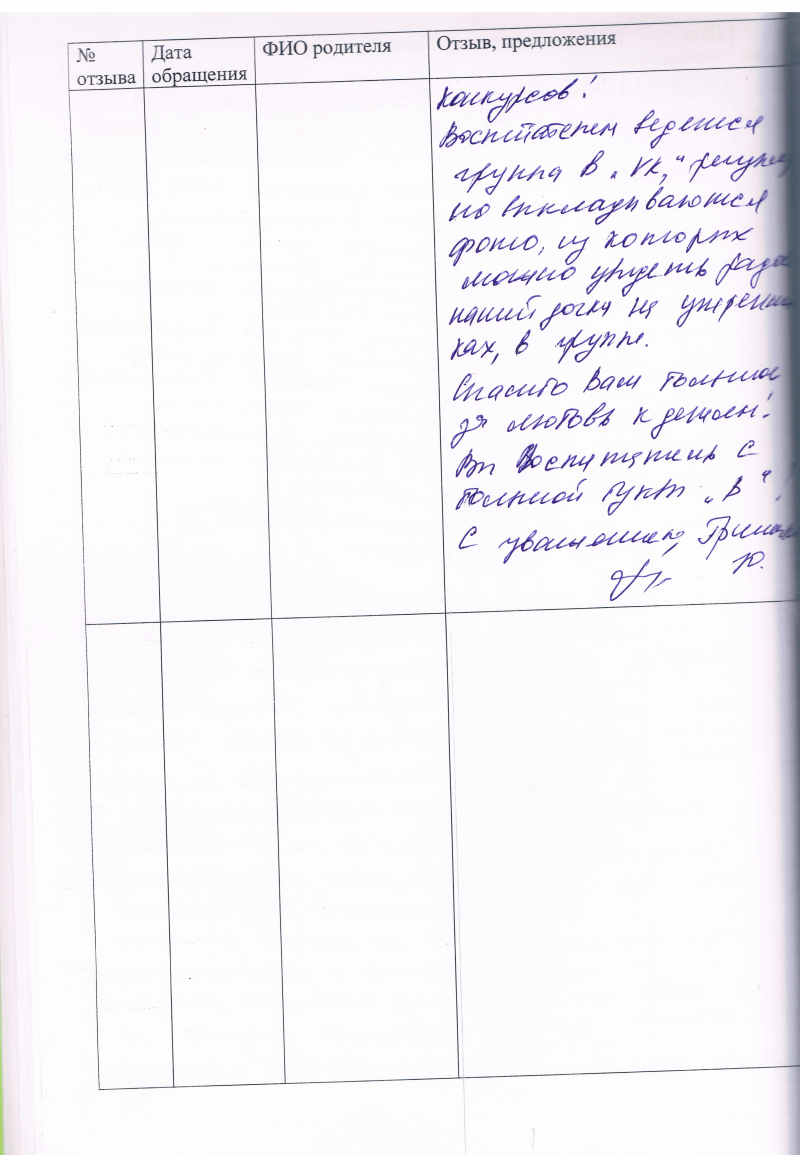 № отзыва
Дата обращения
ФИО родителя
Отзыв, предложения
конкурсов!
Воспитателем ведется
группа в „VK,“ регуляр
но выкладываются
фото, из которых
можно увидеть радос
нашей дочки на утренни
ках, в группе.
Спасибо Вам большое
за любовь к детям!
Вы Воспитатель с
большой буквы „В“!
С уважением,
Ю.